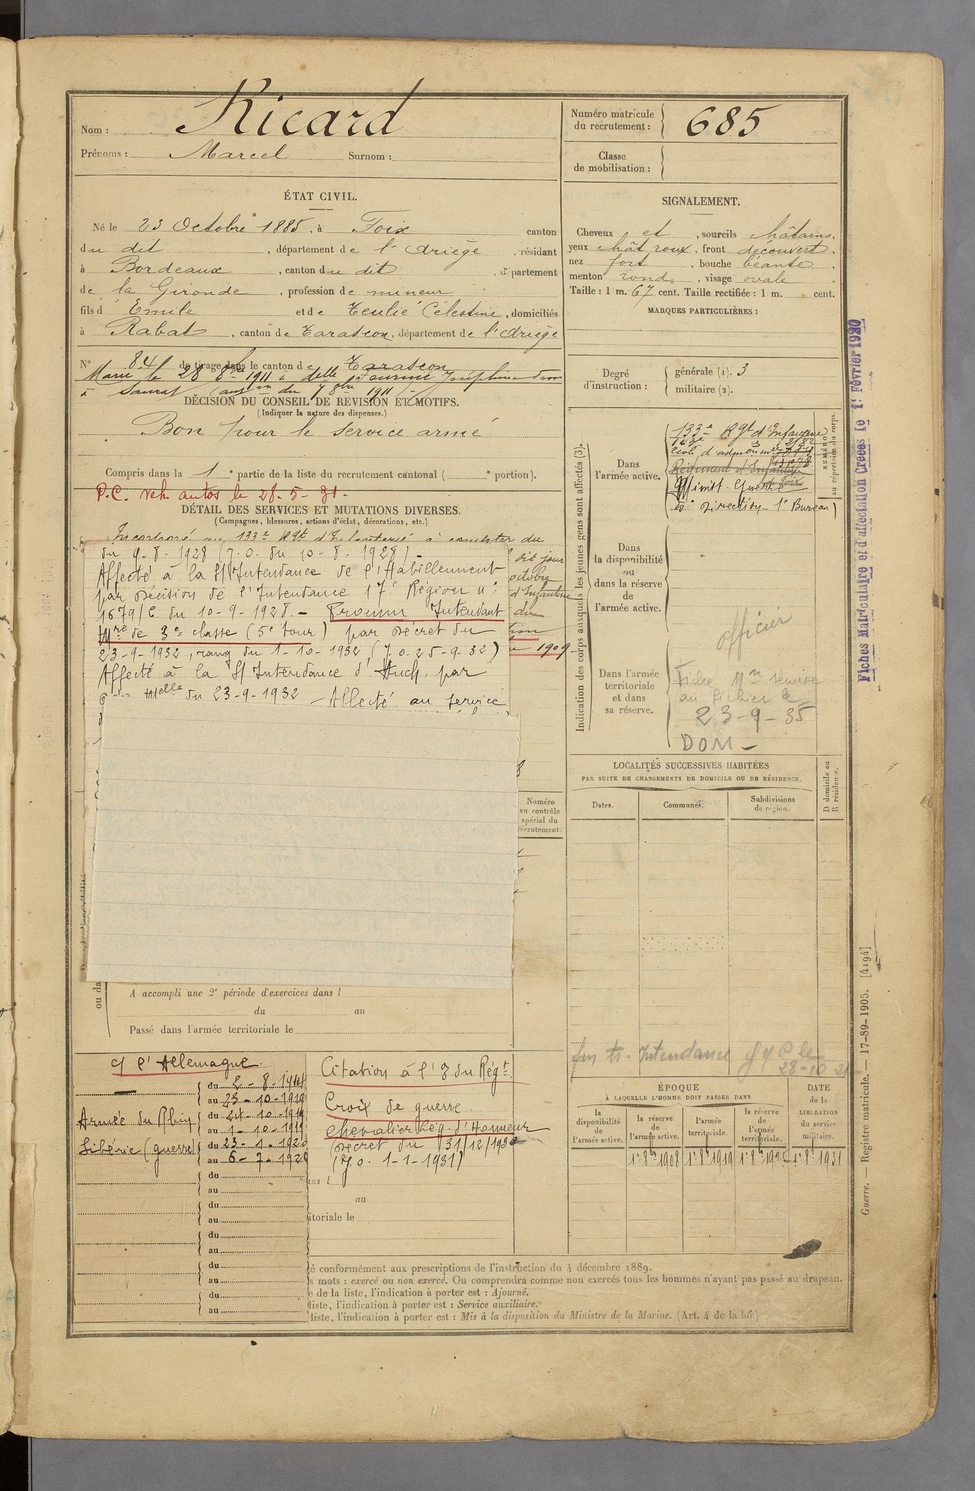 Nom : Ricard
Prénoms : Marcel Surnom :
Numéro matricule du recrutement : 685
Classe de mobilisation :
ÉTAT CIVIL.
Né le 23 Octobre 1885, à Foix canton
du dit, département de l'Ariège, résidant
à Bordeaux, canton du dit, département
de la Gironde, profession de mineur
fils d'Emile et de Teulié Célestine, domiciliés
à Rabat, canton de Tarascon, département de l'Ariège
SIGNALEMENT.
Cheveux et, sourcils châtains,
yeux chât roux, front découvert,
nez fort, bouche béante,
menton rond, visage ovale.
Taille : 1 m. 67 cent. Taille rectifiée : 1 m. cent.
MARQUES PARTICULIÈRES :
N° 84 de tirage dans le canton de Tarascon
Marié le 28 1911 à delle Joséphine
à Saurat
DÉCISION DU CONSEIL DE REVISION ET MOTIFS.
(Indiquer la nature des dispenses.)
Bon pour le service armé
Compris dans la 1 e partie de la liste du recrutement cantonal ( e portion).
P.C. veh autos le 28-5-31-
DÉTAIL DES SERVICES ET MUTATIONS DIVERSES.
(Campagnes, blessures, actions d'éclat, décorations, etc.)
Incorporé au 133e Rgt d'Infanterie à compter du
du 9-8-1928 (J.O. du 10-8-1928) -
Affecté à la S/Intendance de l'Habillement
par Décision de l'Intendance 17e Région n°
1679/C du 10-9-1928. - Promu Intendant
Mre de 3e classe (5e tour) par Décret du
23-9-1932, rang du 1-10-1932 (J.O. 25-9-32)
Affecté à la S/Intendance d'Auch, par
du 23-9-1932 - Affecté au service
dit jour
octobre
d'Infanterie
du
1909-
Degré d'instruction : générale (1). 3
militaire (2).
Indication des corps auxquels les jeunes gens sont affectés (3).
NUMÉRO au répertoire du corps.
Dans l'armée active.
133e Rgt d'Infanterie
163e
Régiment d'Infanterie
Minist. Guerre
Direction - 1er Bureau
Dans la disponibilité ou dans la réserve de l'armée active.
Dans l'armée territoriale et dans sa réserve.
officier
Fiche Mre réserve
au fichier le
23-9-35
DOM -
Fiches Matriculaire et d'affectation Créées le 1er Février 1920
LOCALITÉS SUCCESSIVES HABITÉES
PAR SUITE DE CHANGEMENTS DE DOMICILE OU DE RÉSIDENCE.
D domicile ou R résidence.
Dates. Communes. Subdivisions de région.
Numéro au contrôle spécial du recrutement.
A accompli une 2e période d'exercices dans l
du au
Passé dans l'armée territoriale le
Intendance
28-10
c/ l'Allemagne
du 2-8-1914
au 23-10-1919
Armée du Rhin du 24-10-1919
au 1-10-19
Sibérie (guerre) du 23-1-1920
au 6-7-1920
du
au
du
au
du
au
du
au
du
au
Citation à l'O du Régt.
Croix de guerre
Chevalier Lég. d'Honneur
Décret du 31/12/1930
(J.O. 1-1-1931)
au
itoriale le
ÉPOQUE
À LAQUELLE L'HOMME DOIT PASSER DANS
DATE de la LIBÉRATION du service militaire.
la disponibilité de l'armée active.
la réserve de l'armée active.
l'armée territoriale.
la réserve de l'armée territoriale.
1er 8bre 1908 1er 8bre 1919 1er 8bre 1925 1er 8bre 1931
é conformément aux prescriptions de l'instruction du 4 décembre 1889.
s mots : exercé ou non exercé. On comprendra comme non exercés tous les hommes n'ayant pas passé au drapeau.
e de la liste, l'indication à porter est : Ajourné.
liste, l'indication à porter est : Service auxiliaire.
liste, l'indication à porter est : Mis à la disposition du Ministre de la Marine. (Art. 4 de la loi)
Guerre. — Registre matricule. 17-89-1905. [4194]